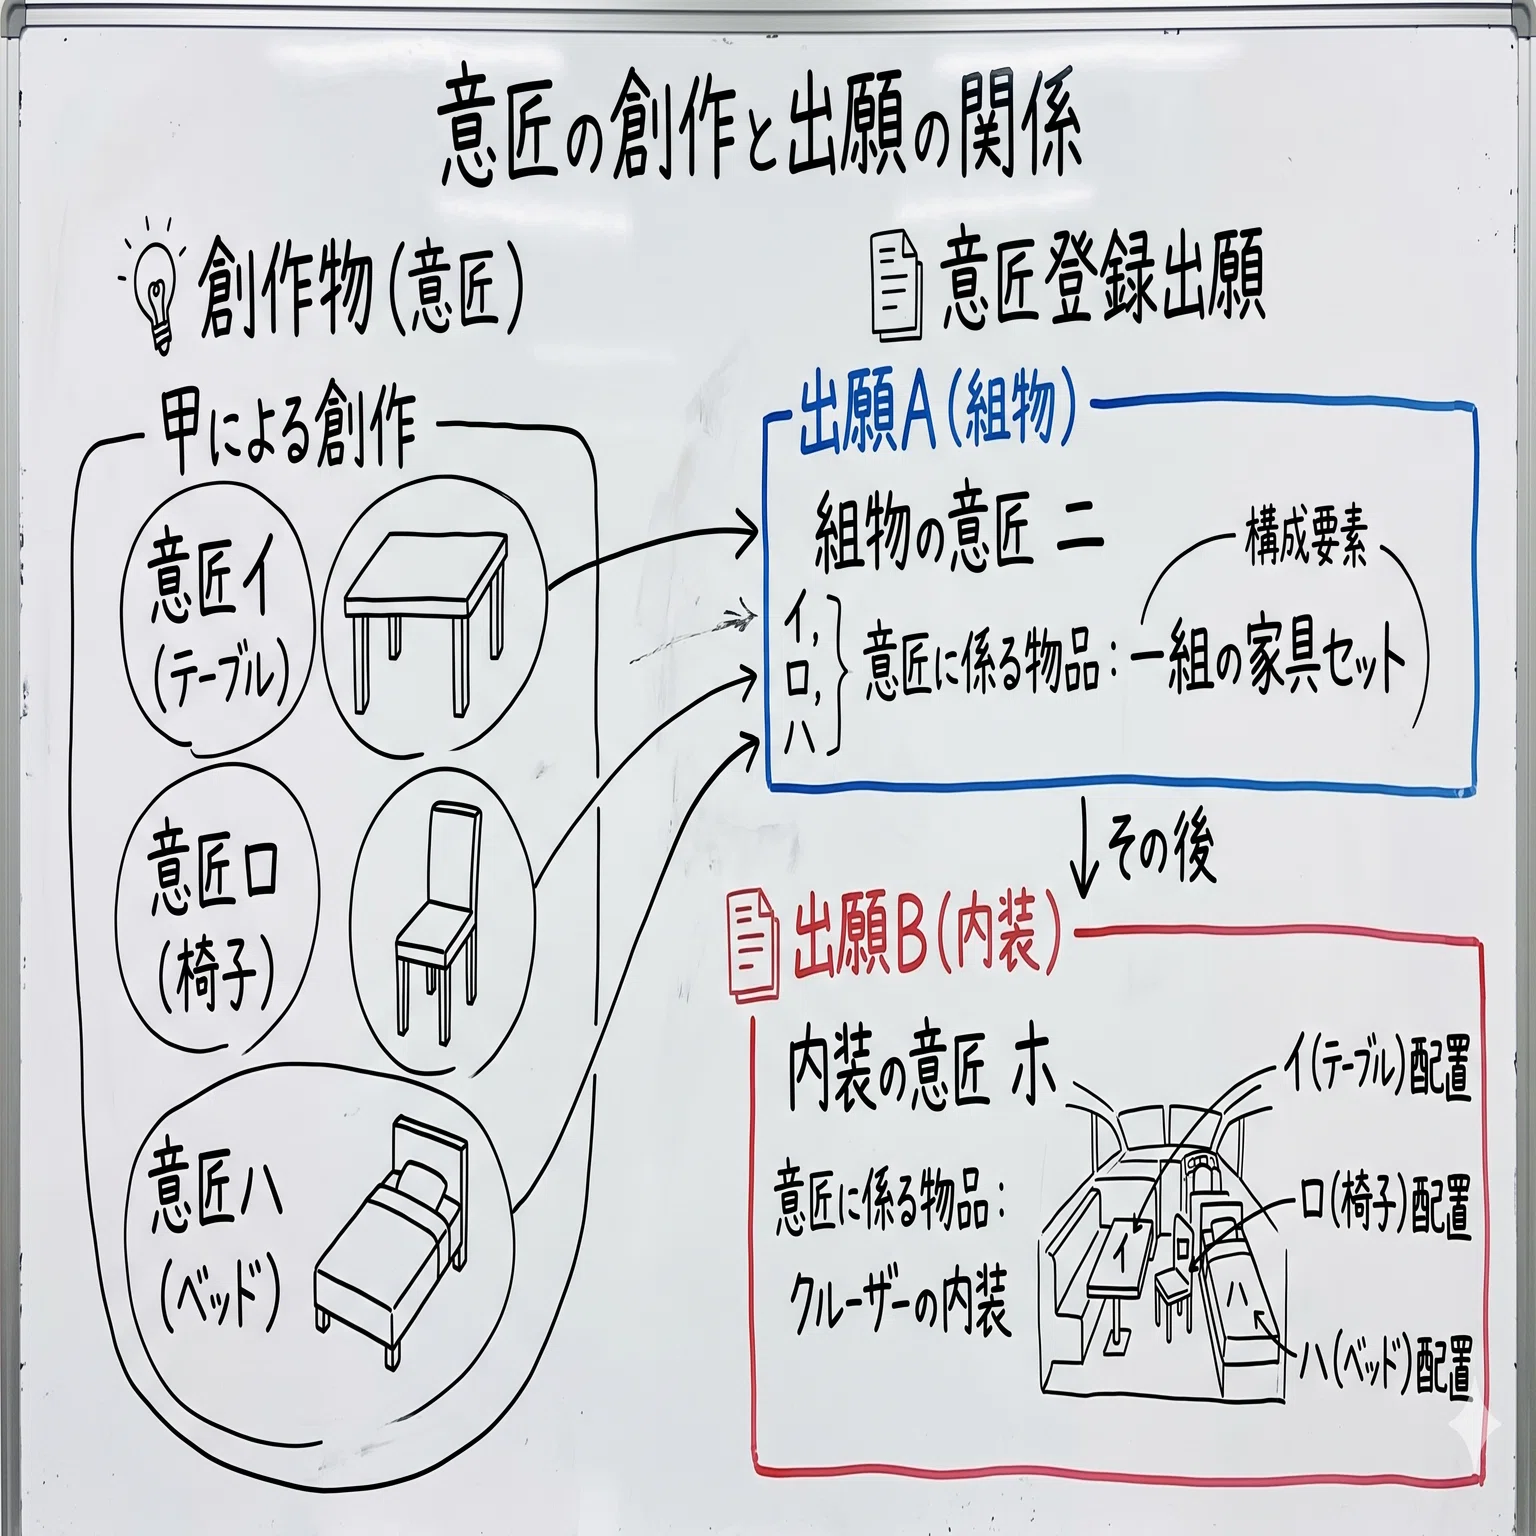 意匠の創作と出願の関係
創作物(意匠)
甲による創作
意匠イ
(テーブル)
意匠ロ
(椅子)
意匠ハ
(ベッド)
意匠登録出願
出願A(組物)
組物の意匠 ニ
構成要素
イ,
ロ,
ハ
意匠に係る物品:一組の家具セット
その後
出願B(内装)
内装の意匠 ホ
意匠に係る物品:
クルーザーの内装
イ(テーブル)配置
ロ(椅子)配置
ハ(ベッド)配置
イ
ロ
ハ